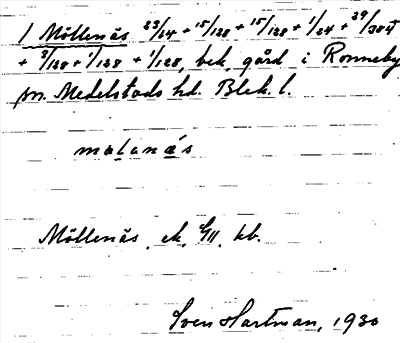 1 Möllenäs 23/24 + 15/128 + 15/128 + 1/24 + 29/384
+ 3/128 + 1/128 + 1/128, bek. gård i Ronneby
sn. Medelstads hd. Blek. l.
mɑlɑnǽs
Möllenäs, ek, GII, kb.
Sven Hartman, 1930